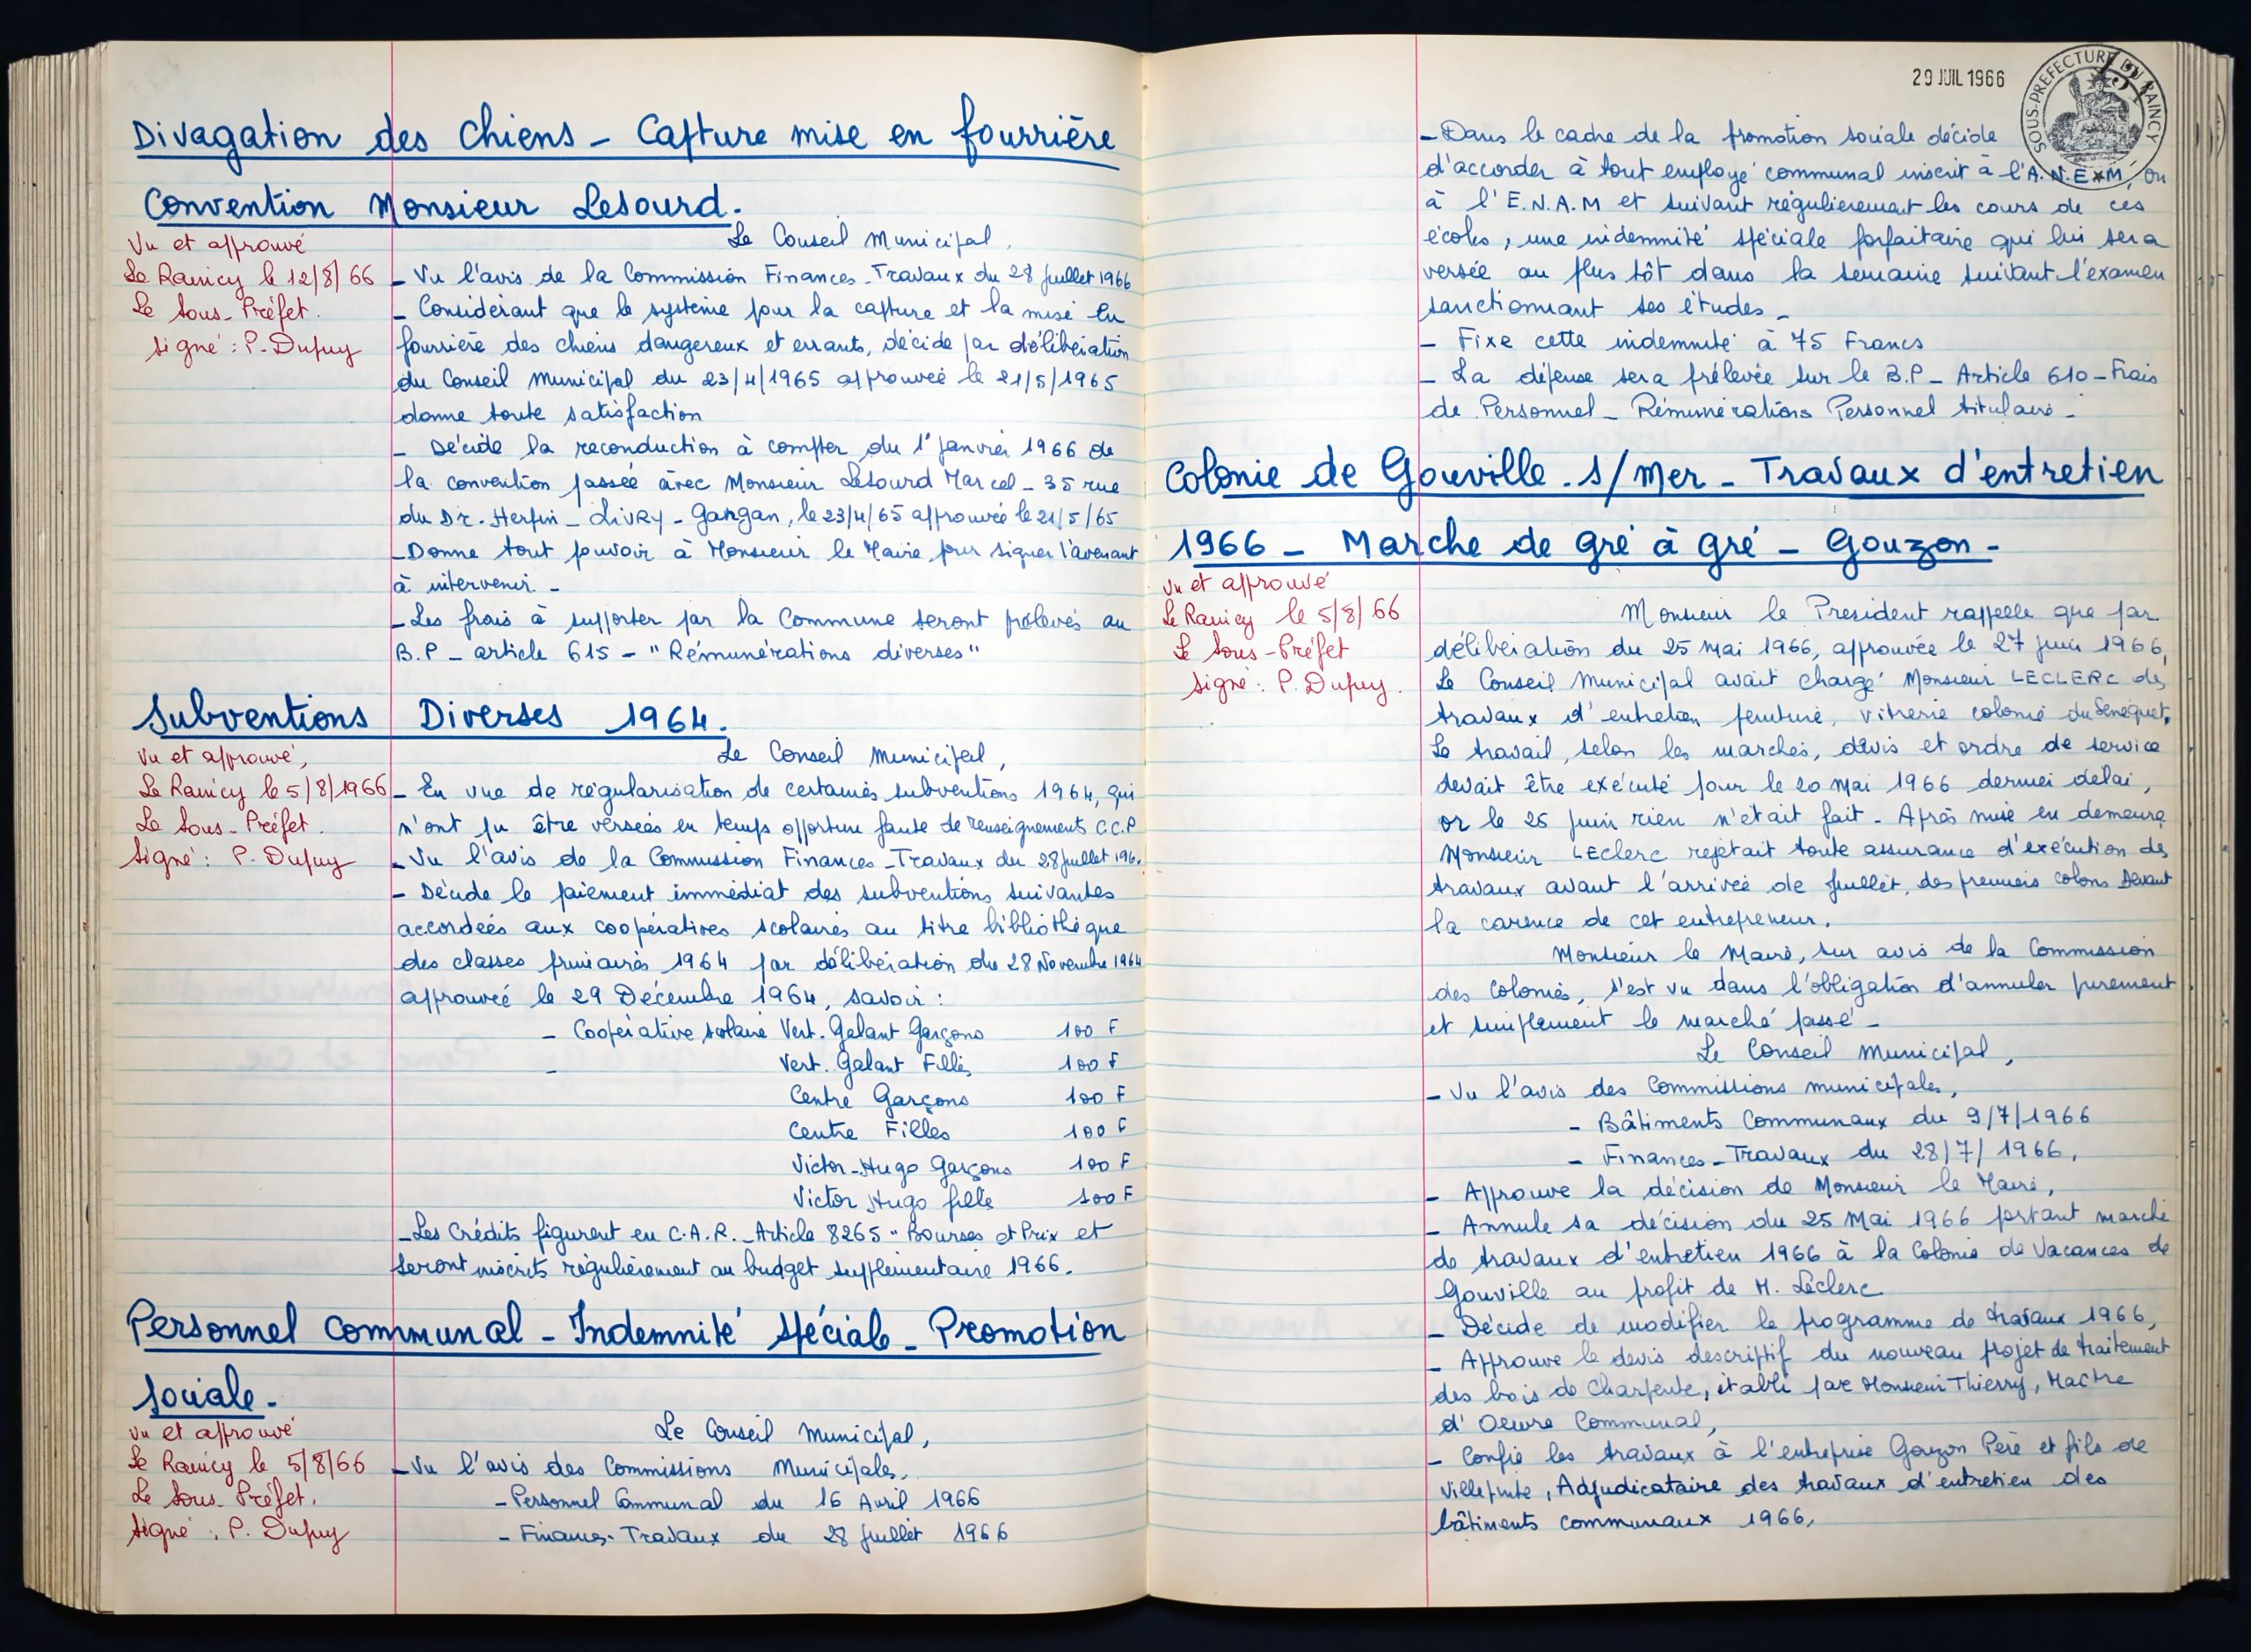 Divagation des Chiens - Capture mise en fourrière
Convention Monsieur Lesourd.
Vu et approuvé
Le Raincy le 12/8/66
Le Sous-Préfet.
signé : P. Dupuy
Le Conseil Municipal,
- Vu l'avis de la Commission Finances-Travaux du 28 Juillet 1966
- Considérant que le système pour la capture et la mise en
fourrière des chiens dangereux et errants, décidé par délibération
du Conseil Municipal du 23/4/1965 approuvée le 21/5/1965
donne toute satisfaction
- Décide la reconduction à compter du 1er Janvier 1966 de
la convention passée avec Monsieur Lesourd Marcel - 35 rue
du Dr. Herpin - LIVRY-Gargan, le 23/4/65 approuvée le 21/5/65
- Donne tout pouvoir à Monsieur le Maire pour signer l'avenant
à intervenir -
- Les frais à supporter par la Commune seront prélevés au
B.P - article 615 - "Rémunérations diverses"
Subventions Diverses 1964.
Vu et approuvé,
Le Raincy le 5/8/1966
Le Sous-Préfet.
Signé : P. Dupuy
Le Conseil Municipal,
- En vue de régularisation de certaines subventions 1964, qui
n'ont pu être versées en temps opportun faute de renseignements C.C.P
- Vu l'avis de la Commission Finances-Travaux du 28 Juillet 196.
- Décide le paiement immédiat des subventions suivantes
accordées aux coopératives scolaires au titre bibliothèque
des classes primaires 1964 par délibération du 28 Novembre 1964
approuvée le 29 Décembre 1964, savoir :
- Coopérative scolaire Vert. Galant Garçons 100 F
- Vert. Galant Filles 100 F
Centre Garçons 100 F
Centre Filles 100 F
Victor-Hugo Garçons 100 F
Victor Hugo filles 100 F
- Les Crédits figurent en C.A.R. - Article 8265 "Bourses et Prix et
seront inscrits régulièrement au budget supplémentaire 1966.
Personnel communal - Indemnité spéciale - Promotion
sociale.
Vu et approuvé
Le Raincy le 5/8/66
Le Sous-Préfet.
Signé : P. Dupuy
Le Conseil Municipal,
- Vu l'avis des Commissions Municipales,
- Personnel Communal du 16 Avril 1966
- Finances-Travaux du 28 Juillet 1966
29 JUIL 1966
SOUS-PREFECTURE DU RAINCY
- Dans le cadre de la promotion sociale décide
d'accorder à tout employé communal inscrit à l'A.N.E.M, ou
à l'E.N.A.M et suivant régulièrement les cours de ces
écoles, une indemnité spéciale forfaitaire qui lui sera
versée au plus tôt dans la semaine suivant l'examen
sanctionnant ses études -
- Fixe cette indemnité à 75 Francs
- La dépense sera prélevée sur le B.P - Article 610 - Frais
de Personnel - Rémunérations Personnel titulaire -
Colonie de Gouville . s/mer - Travaux d'entretien
1966 - Marche de gré à gré - Gouzon -
Vu et approuvé
Le Raincy le 5/8/66
Le Sous-Préfet
Signé : P. Dupuy.
Monsieur le Président rappelle que par
délibération du 25 Mai 1966, approuvée le 27 juin 1966,
Le Conseil Municipal avait chargé Monsieur LECLERC des
travaux d'entretien peinture, vitrerie colonie du Sénéquet.
Le travail, selon les marchés, devis et ordre de service
devait être exécuté pour le 20 Mai 1966 dernier délai,
or le 25 juin rien n'était fait - Après mise en demeure
Monsieur LEclerc rejetait toute assurance d'exécution des
travaux avant l'arrivée de Juillet, des premiers colons Devant
la carence de cet entrepreneur.
Monsieur le Maire, sur avis de la Commission
des Colonies, s'est vu dans l'obligation d'annuler purement
et simplement le marché passé -
Le Conseil Municipal,
- Vu l'avis des Commissions municipales,
- Bâtiments Communaux du 9/7/1966
- Finances-Travaux du 28/7/1966.
- Approuve la décision de Monsieur le Maire,
- Annule sa décision du 25 Mai 1966 portant marché
de travaux d'entretien 1966 à la Colonie de Vacances de
Gouville au profit de M. Leclerc
- Décide de modifier le programme de travaux 1966,
- Approuve le devis descriptif du nouveau projet de traitement
des bois de Charpente, établi par Monsieur Thierry, Maître
d'Oeuvre Communal,
- Confie les travaux à l'entreprise Gouzon Père et fils de
Villepinte, Adjudicataire des travaux d'entretien des
bâtiments communaux 1966,